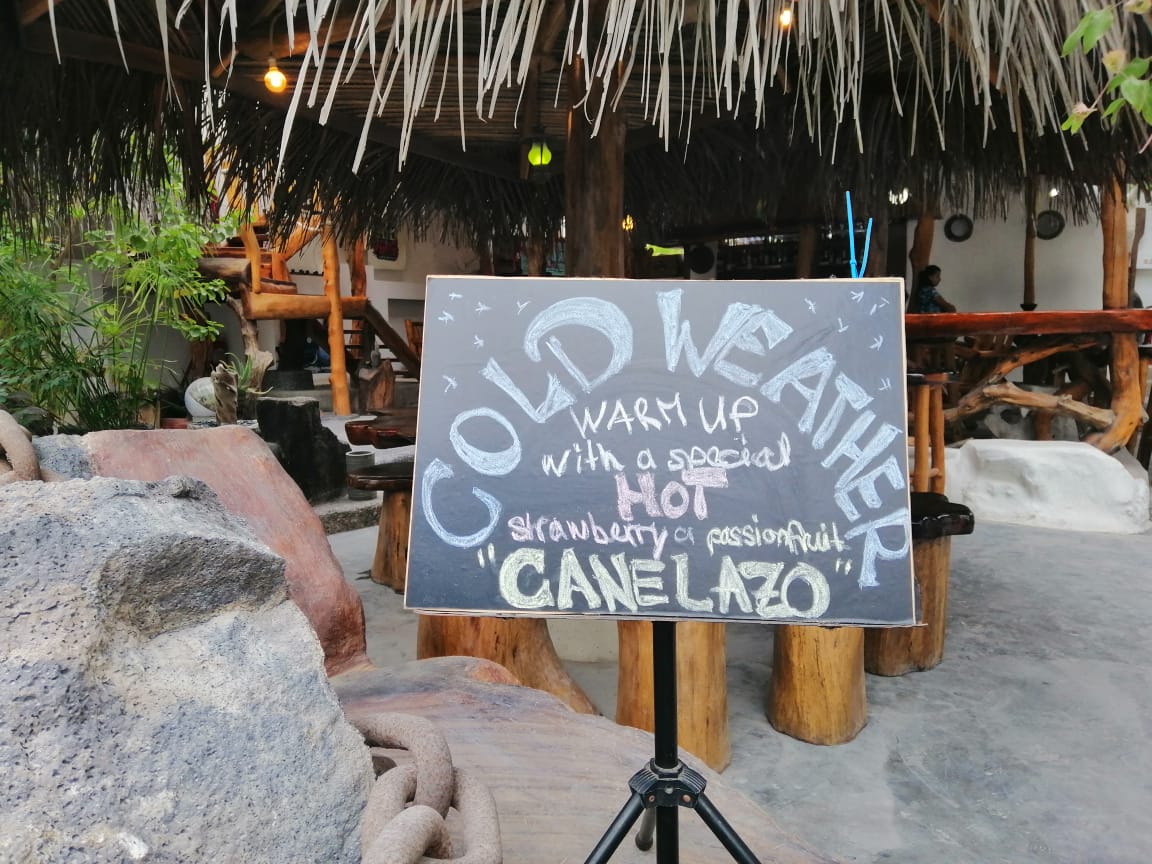 COLD WEATHER
WARM UP
with a special
HOT
strawberry a passionfruit
"CANELAZO"